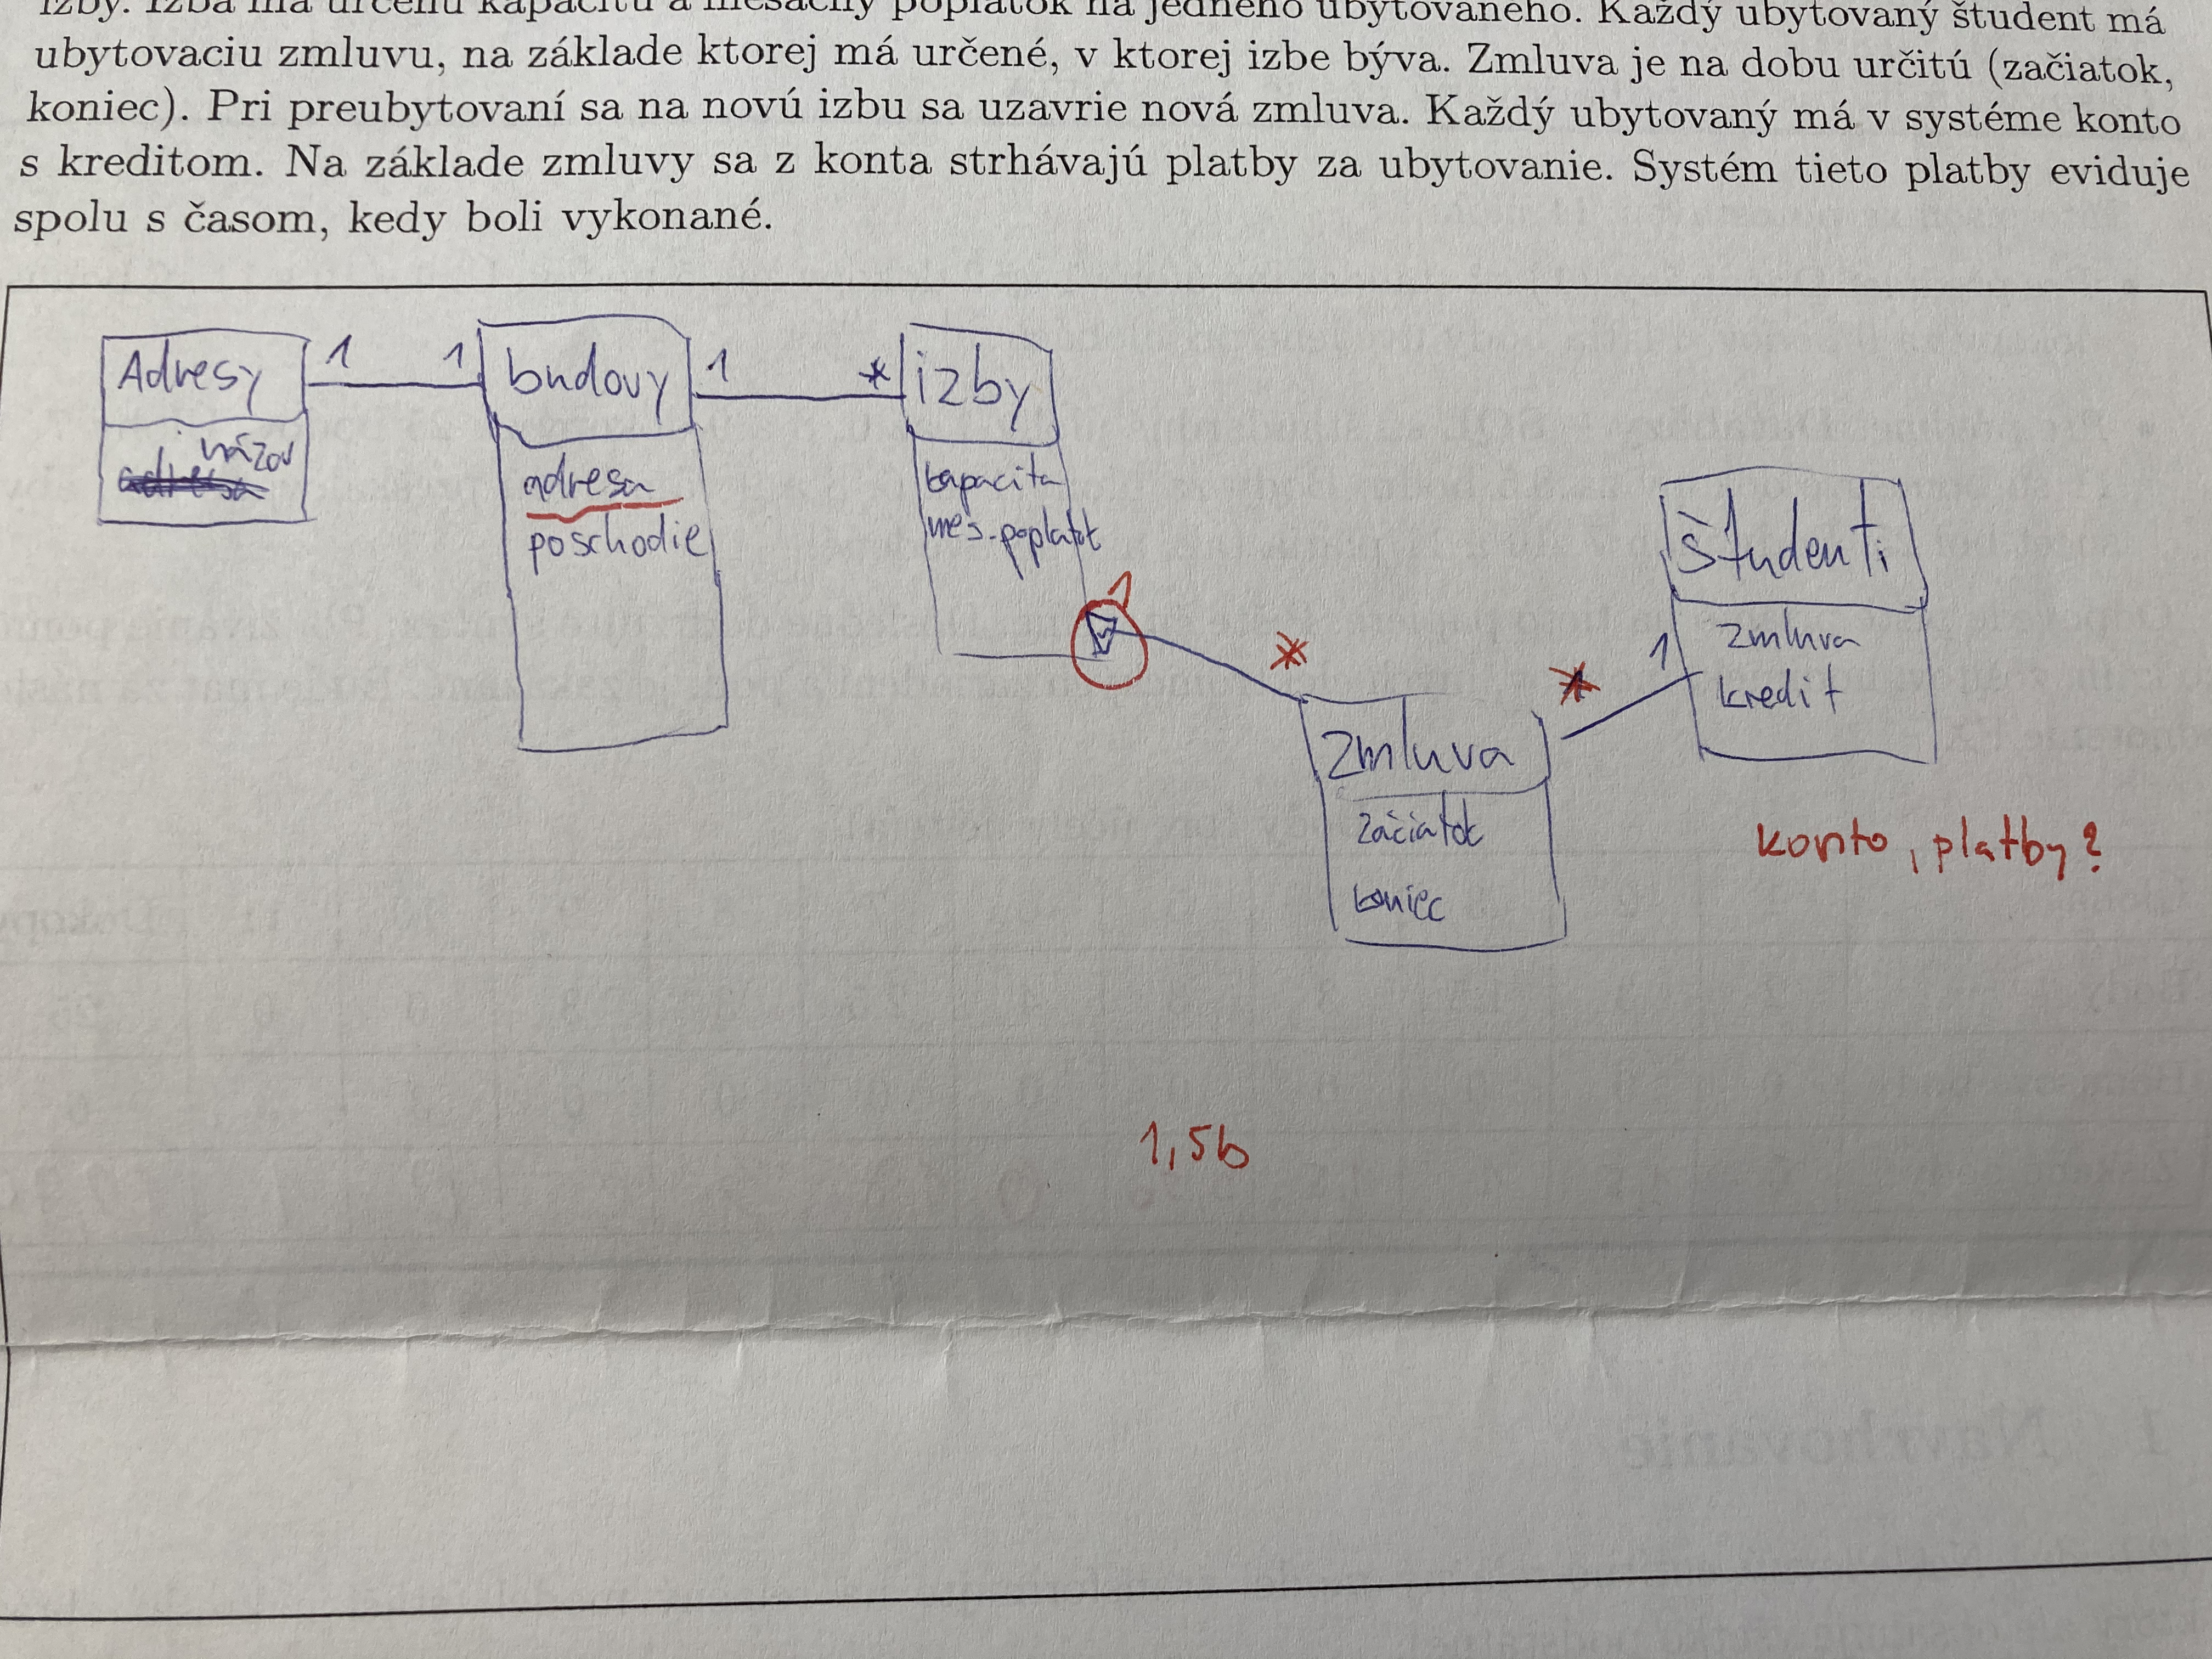 izby. Izba má určenú kapacitu a mesačný poplatok na jedného ubytovaného. Každý ubytovaný študent má
ubytovaciu zmluvu, na základe ktorej má určené, v ktorej izbe býva. Zmluva je na dobu určitú (začiatok,
koniec). Pri preubytovaní sa na novú izbu sa uzavrie nová zmluva. Každý ubytovaný má v systéme konto
s kreditom. Na základe zmluvy sa z konta strhávajú platby za ubytovanie. Systém tieto platby eviduje
spolu s časom, kedy boli vykonané.
Adresy
názov
1
1
budovy
adresa
poschodie
1
*
izby
kapacita
mes. poplatok
?
*
Zmluva
začiatok
koniec
*
1
študenti
zmluva
kredit
konto, platby?
1,5b